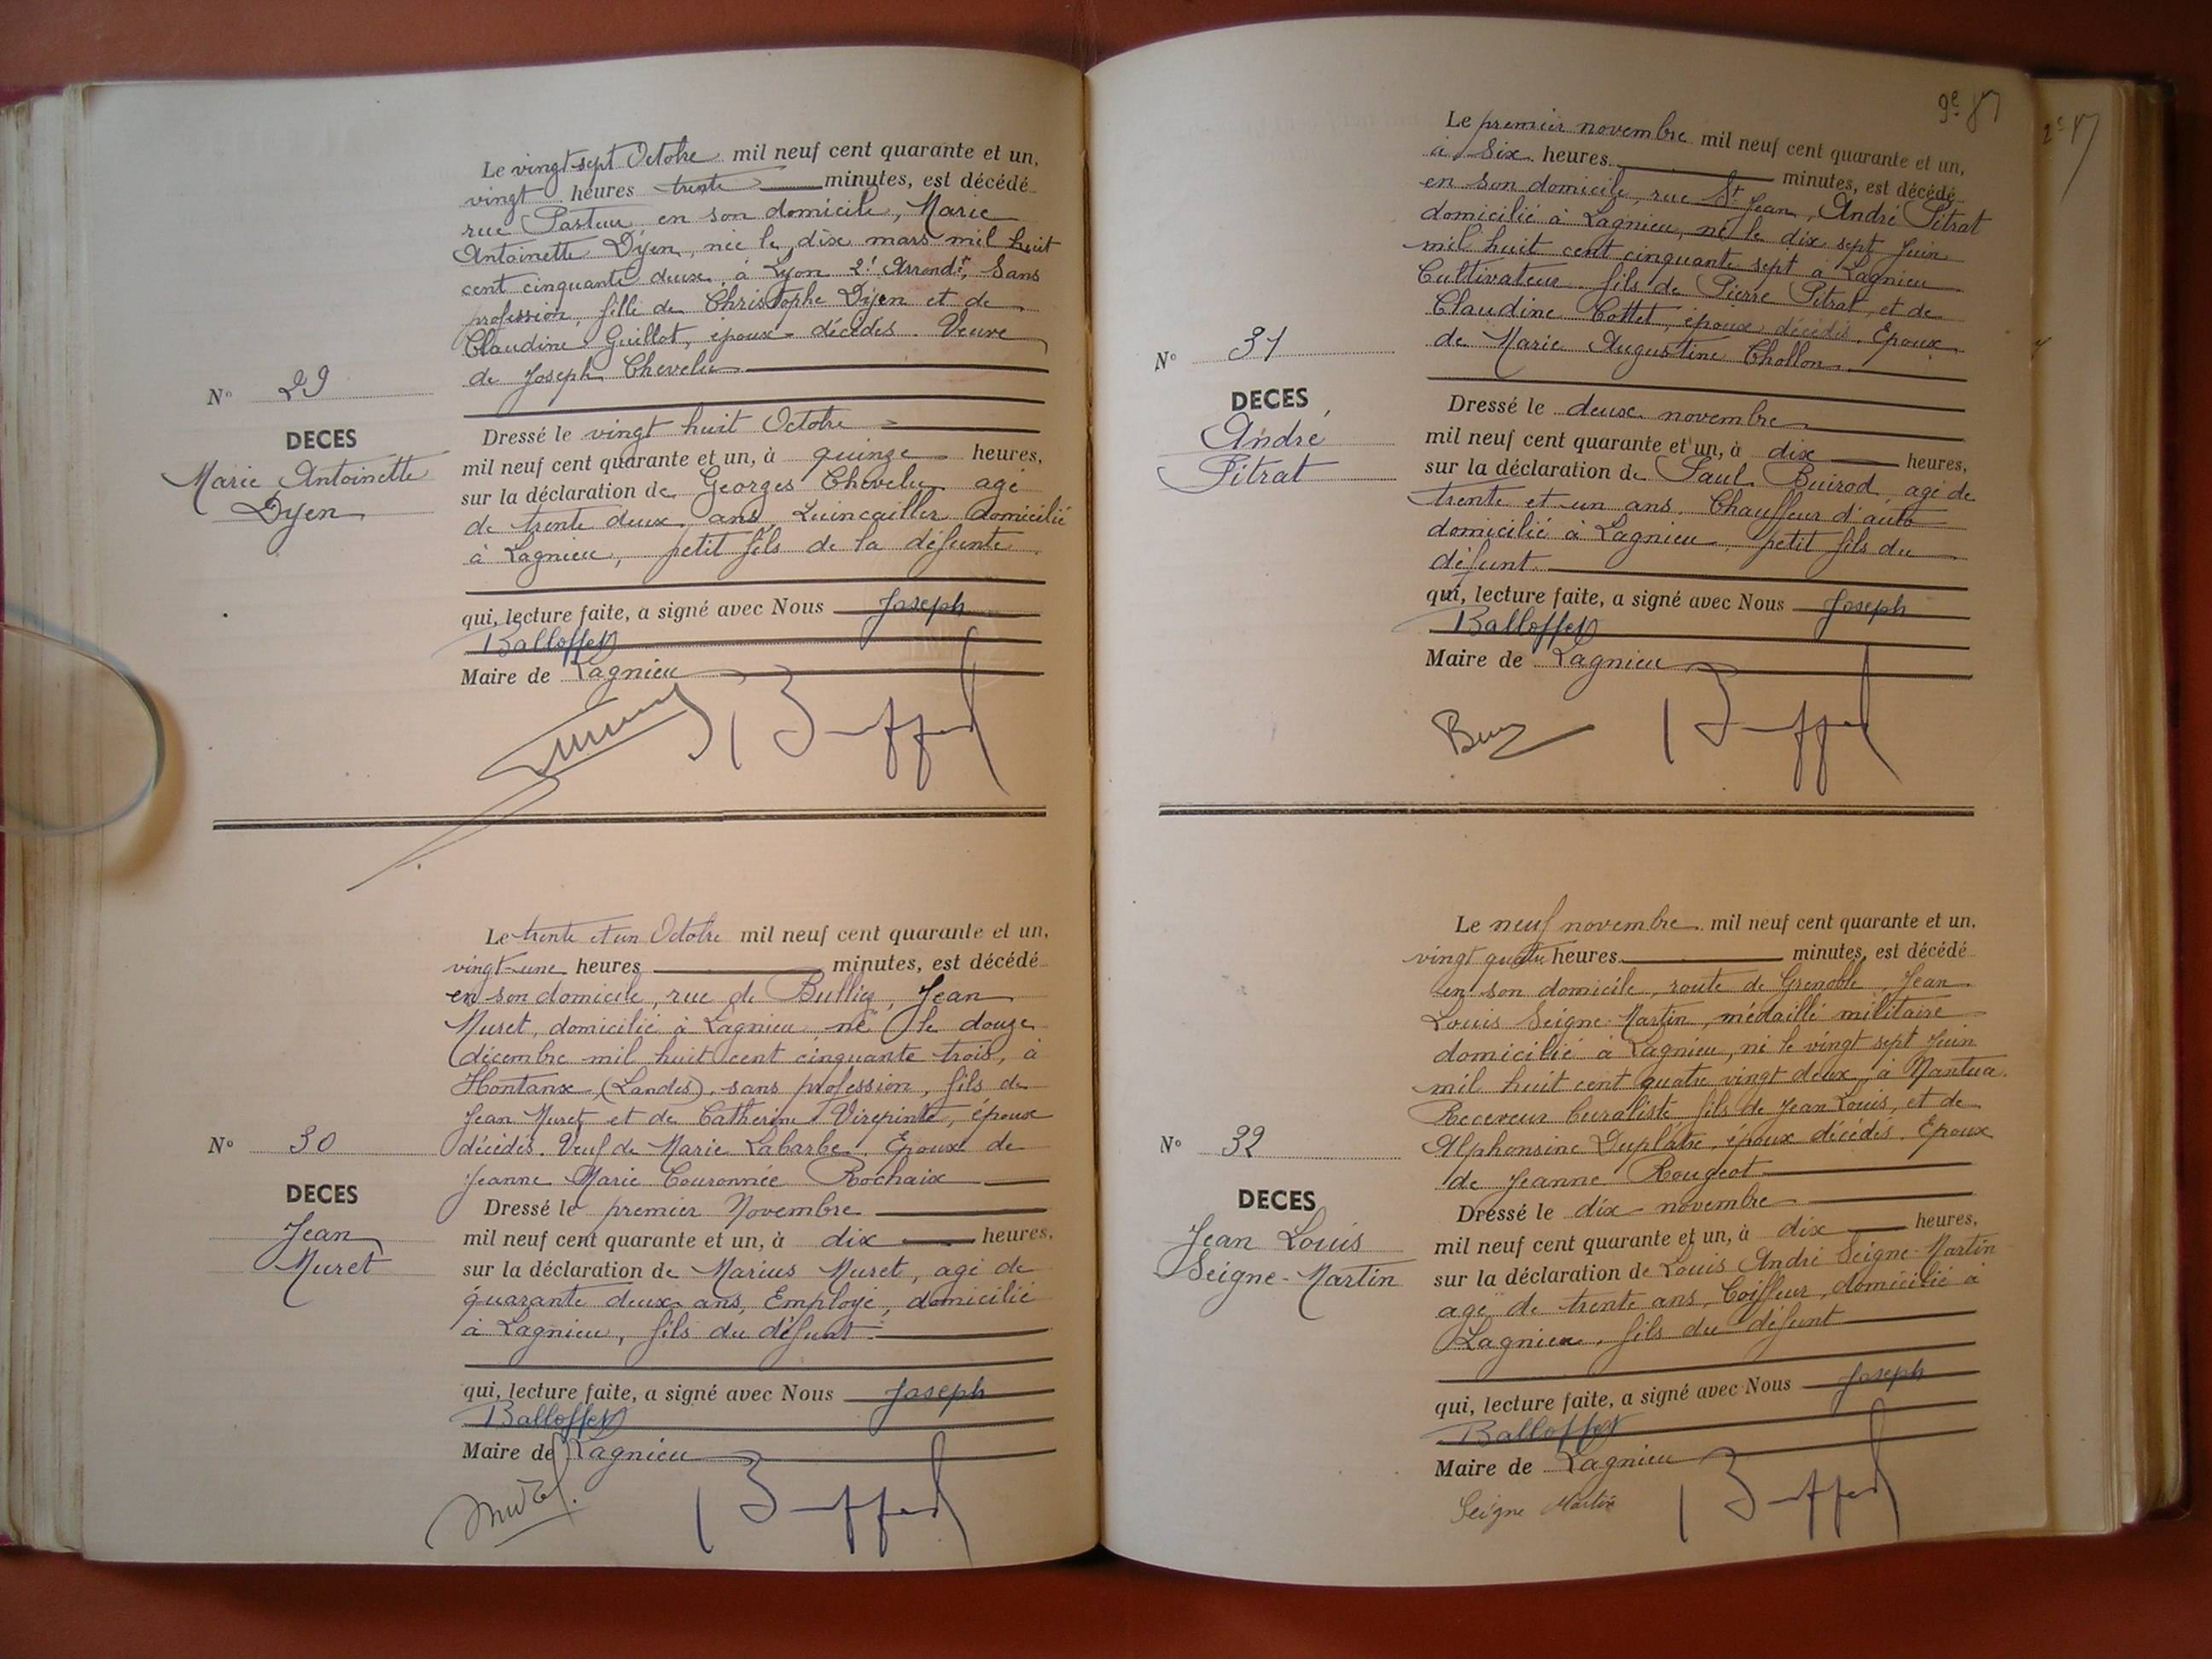 Le vingt-sept Octobre mil neuf cent quarante et un,
vingt heures trente minutes, est décédé
rue Pasteur, en son domicile, Marie
Antoinette Dyen, née le dix mars mil huit
cent cinquante deux à Lyon 2e Arrondt, Sans
profession, fille de Christophe Dyen et de
Claudine Guillot, époux décédés. Veuve
de Joseph Chevelu
N° 29
DECES
Marie Antoinette
Dyen
Dressé le vingt huit Octobre
mil neuf cent quarante et un, à quinze heures,
sur la déclaration de Georges Chevelu agé
de trente deux ans, Quincailler domicilié
à Lagnieu, petit fils de la défunte
qui, lecture faite, a signé avec Nous Joseph
Balloffet
Maire de Lagnieu
Le trente et un Octobre mil neuf cent quarante et un,
vingt-une heures minutes, est décédé
en son domicile, rue de Bullig, Jean
Muret, domicilié à Lagnieu né le douze
décembre mil huit cent cinquante trois, à
Hontanx (Landes), sans profession, fils de
Jean Muret et de Catherine Virepinte, époux
décédés. Veuf de Marie Labarbe. Epoux de
Jeanne Marie Couronnée Rochaix
N° 30
DECES
Jean
Muret
Dressé le premier Novembre
mil neuf cent quarante et un, à dix heures,
sur la déclaration de Marius Muret, agé de
quarante deux ans, Employé, domicilié
à Lagnieu, fils du défunt.
qui, lecture faite, a signé avec Nous Joseph
Balloffet
Maire de Lagnieu
Muret
9e
Le premier novembre mil neuf cent quarante et un,
à Six heures minutes, est décédé
en son domicile, rue St Jean, André Pitrat
domicilié à Lagnieu, né le dix sept Juin
mil huit cent cinquante sept à Lagnieu
Cultivateur fils de Pierre Pitrat, et de
Claudine Cottet, époux décédés. Epoux
de Marie Augustine Chollon
N° 31
DECES
André
Pitrat
Dressé le deux novembre
mil neuf cent quarante et un, à dix heures,
sur la déclaration de Paul Buirod, agé de
trente et un ans. Chauffeur d'auto
domicilié à Lagnieu, petit fils du
défunt.
qui, lecture faite, a signé avec Nous Joseph
Balloffet
Maire de Lagnieu
Le neuf novembre mil neuf cent quarante et un,
vingt quatre heures minutes, est décédé
en son domicile, route de Grenoble, Jean
Louis Seigne-Martin, médaillé militaire
domicilié à Lagnieu, né le vingt sept Juin
mil huit cent quatre vingt deux, à Nantua
Receveur buraliste fils de Jean Louis, et de
Alphonsine Duplâtre, époux décédés. Epoux
de Jeanne Rougeot
N° 32
DECES
Jean Louis
Seigne-Martin
Dressé le dix novembre
mil neuf cent quarante et un, à dix heures,
sur la déclaration de Louis André Seigne-Martin
agé de trente ans, Coiffeur, domicilié à
Lagnieu, fils du défunt
qui, lecture faite, a signé avec Nous Joseph
Balloffet
Maire de Lagnieu
Seigne Martin